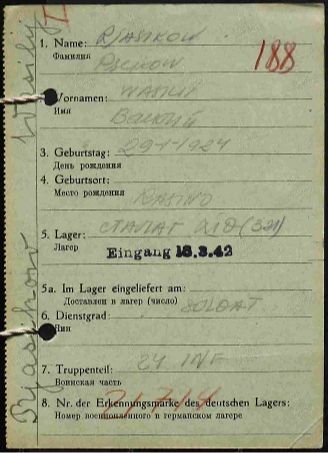 188
1. Name: RJASIKOW
Фамилия
Vornamen: WASILII
Имя
3. Geburtstag: 29-1-1924
День рождения
4. Geburtsort:
Место рождения RASINO
5. Lager: СТАЛАГ XID (321)
Лагер
Eingang 18.3.42
5a. Im Lager eingeliefert am:
Доставлен в лагер (число)
6. Dienstgrad: SOLDAT
Чин
7. Truppenteil: 24 INF
Воинская часть
8. Nr. der Erkennungsmarke des deutschen Lagers:
Номер военнопленного в германском лагере
Wasily